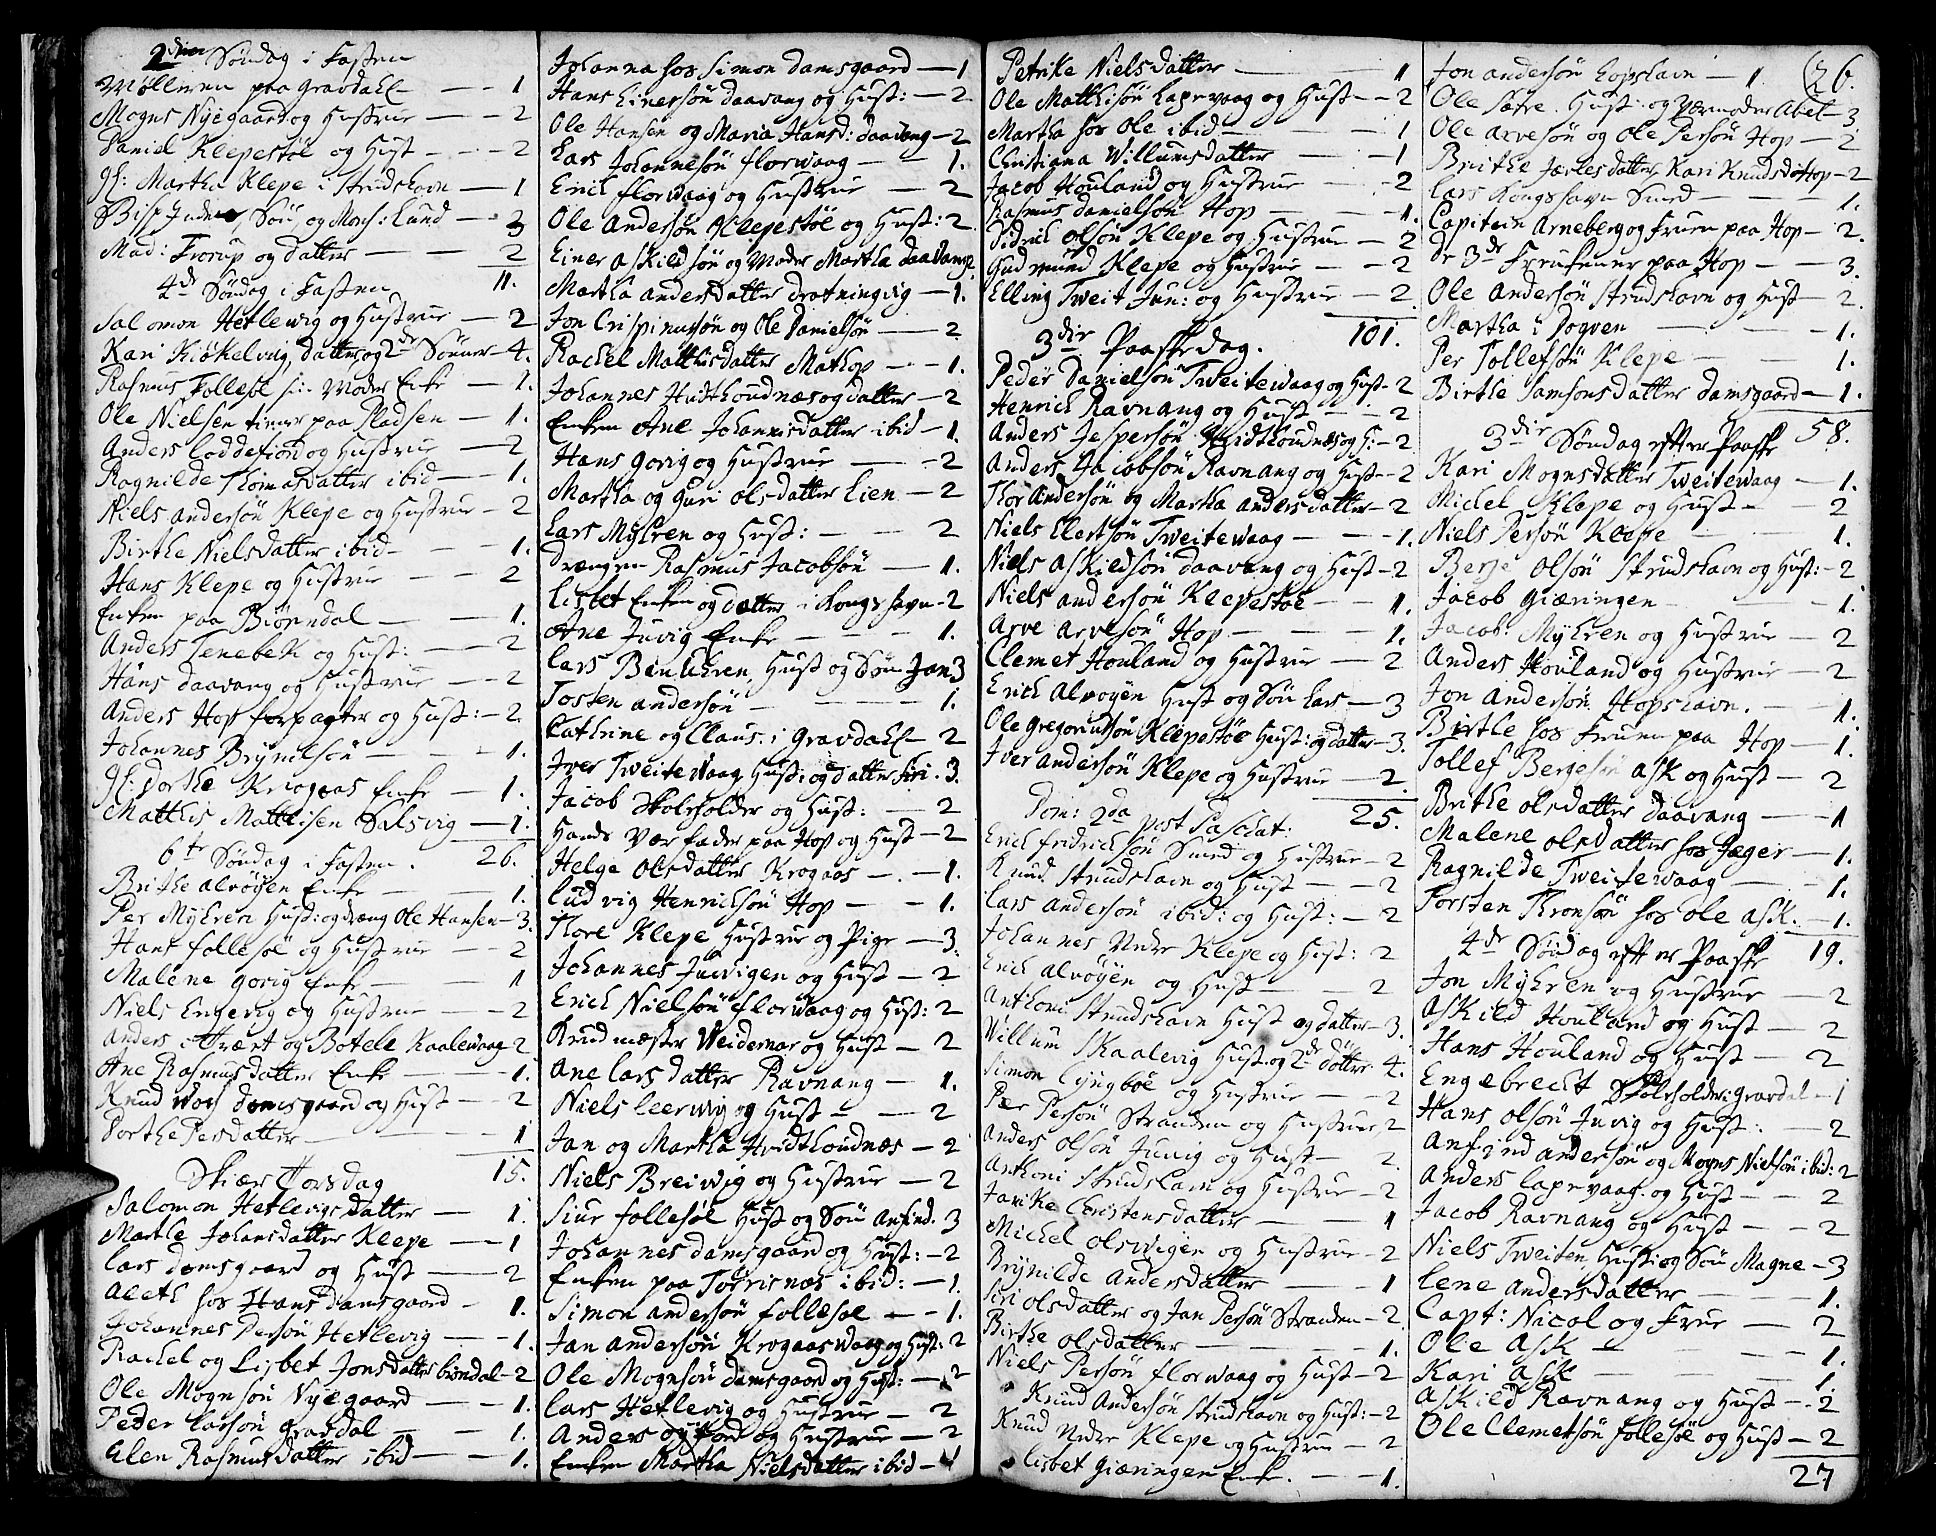 2den Søndag i Fasten
Mølleren paa Gravdahl — 1
Mogns Nyegaard og Hustrue — 2
Daniel Klepestøl og Hust — 2
Gl: Martha Klepe i Strudshavn — 1
Søn og Mons: Lund — 3
Mad: Frorup og datter — 2
4de Søndag i Fasten 11.
Salomon Hetlevig og Hustrue — 2
Kari Kiøkelvig, datter og 2de Sønner — 4.
Rasmus Follesø Moder Enke — 1.
Ole Nielsen tiener paa Pladsen — 1.
Anders Loddefiord og Hustrue — 2
Ragnilde Thomasdatter ibid — 1.
Niels Andersøn Klepe og Hustrue — 2
Birthe Nielsdatter ibid — 1.
Hans Klepe og Hustrue — 2
Enken paa Biørndal — 1.
Anders Tenebek og Hust: — 2
Hans Daavang og Hustrue — 2
Anders Hop forpagter og Hust: — 2.
Johannes Brynelsøn — 1.
Gl: Dorthe Krogaas Enke — 1.
Matthis Mattisen Salsvig — 1.
6te Søndag i Fasten. 26.
Brithe Alvøyen Enke — 1.
Per Myhren Hust: og dræng Ole Hansen — 3.
Hans Follesøe og Hustrue — 2
Malene Gorig Enke — 1
Niels Engevig og Hustrue — 2
Anders Tvært og Botele Kaalevaag — 2
Ane Rasmusdatter Enke — 1.
Knud Damsgaard og Hust — 2
Dorthe Persdatter — 1
Skiær Torsdag 15.
Salomon Hetlevigs datter — 1.
Marthe Johansdatter Klepe — 1
Lars Damsgaard og Hust — 2
Aleth hos Hans Damsgaard — 1.
Johannes Persøn Hetlevig — 1.
Rachel og Lisbet Jonsdatter Biørndal — 2
Ole Mognsøn Nyegaard — 1.
Peder Larsøn Gravdal — 1.
Elen Rasmusdatter ibid — 1.
Johanna hos Simon Damsgaard — 1
Hans Einersøn Daavang og Hust: — 2
Ole Hansen og Maria Hansd: Daavang — 2
Lars Johannesøn Florvaag — 1.
Erich Florvaag og Hustrue — 2
Ole Andersøn Klepestøe og Hust: 2
Einer Askildsøn og Moder Martha Daavang 2
Martha Andersdatter Drotningvig — 1.
Jon Crispinussøn og Ole Danielsøn — 2
Rachel Matthisdatter Mathop — 1.
Johannes Hvidthoudnæs og datter — 2
Enken Ane Johannisdatter ibid — 1.
Hans Gorig og Hustrue — 2
Martha og Guri Olsdatter Lien — 2
Lars Myhren og Hust: — 2
Drængen Rasmus Jacobsøn — 1.
Lisbet Enken og datter i Kongshavn — 2
Ane Juvig Enke — 1.
Lars Hust og Søn Jan 3
Tosten Andersøn — 1.
Cathrine og Claus i Gravdahl — 2
Iver Tveitevaag Hust: og datter Siri — 3.
Jacob Skoleholder og Hust: — 2
Hands Værfader paa Hop og Hust — 2
Helge Olsdatter Krogaas — 1.
Ludvig Henrichsøn Hop — 1.
Thore Klepe Hustrue og Pige — 3.
Johannes Juvigen og Hust — 2
Erich Nielsøn Florvaag og Hust: 2
Krudmester Weidemar og Hust — 2
Ane Larsdatter Ravnang — 1.
Niels Leervig og Hust — 2
Jan og Martha Hvidthoudnæs — 2
Niels Breivig og Hustrue — 2
Siur Follesøe Hust og Søn Anfind. 3
Johannes Damsgaard og Hust: — 2
Enken paa Torrisnæs ibid: — 1.
Simon Andersøn Follesøe — 1.
Jan Andersøn Krogaasvaag og Hust: 2
Ole Mognsøn Damsgaard og Hust: — 2
Lars Hetlevig og Hustrue — 2
Anders og Hustrue — 2
Enken Martha Nielsdatter ibid — 1
Petrike Nielsdatter — 1
Ole Matthisøn Lapevaag og Hust — 2
Martha hos Ole ibid — 1
Christiana Willumsdatter — 1
Jacob Houland og Hustrue — 2
Rasmus Danielsøn Hop — 1.
Didrich Olsøn Klepe og Hustrue — 2
Gudmund Klepe og Hustrue — 2
Elling Tweit Jun: og Hustrue — 2
3die Paaskedag. 101.
Peder Danielsøn Tweitevaag og Hust — 2
Henrich Ravnang og Hust — 2
Anders Jespersøn Hvidthoudnæs og H: — 2
Anders Jacobsøn Ravnang og Hust — 2
Thor Andersøn og Martha Andersdatter — 2
Niels Elertsøn Tweitevaag — 1.
Niels Askildsøn Daavang og Hust — 2
Niels Andersøn Klepestøe — 1.
Arve Arvesøn Hop — 1.
Clemet Houland og Hustrue — 2
Erich Alvøyen Hust og Søn Lars — 3
Ole Gregoriusøn Klepestøe Hust: og datter — 3.
Iver Andersøn Klepe og Hustrue — 2.
Dom: 2da post Paschat: 25.
Erich Fredrichsøn Smed og Hustrue — 2
Knud Strudshavn og Hust — 2
Lars Andersøn ibid: og Hust: — 2
Johannes Nedre Klepe og Hust: 2
Erich Alvøyen og Hust — 2
Anthoni Strudshavn Hust og datter — 3.
Willum Skaalevig Hust: og 2de døtter — 4.
Simon Lyngbøe og Hustrue — 2
Per Persøn Stranden og Hustrue 2
Anders Olsøn Juvig og Hust — 2.
Anthoni Strudshavn og Hustrue — 2
Janike Christensdatter — 1
Michel Olsvigen og Hustrue — 2
Brynilde Andersdatter — 1
Siri Olsdatter og Jan Persøn Stranden — 2.
Birthe Olsdatter — 1.
Niels Persøn Florvaag og Hust — 2
Knud Andersøn Strudshavn og Hust: — 2
Knud Nedre Klepe og Hustrue — 2
Lisbet Giæringen Enke. — 1.
26.
Jon Andersøn Hopshavn — 1
Ole Sætre Hust: og Værmoder Abel — 3
Ole Arvesøn og Ole Persøn Hop — 2
Brithe Jærlesdatter Kari Knudsd: Hop — 2
Lars Kongshavn Smed — 1.
Capitein Arneberg og Fruen paa Hop — 2.
De 3de Freukener paa Hop — 3.
Ole Andersøn Strudshavn og Hust — 2.
Martha i Dogven — 1.
Per Tollefsøn Klepe — 1.
Birthe Samsonsdatter Damsgaard — 1.
3die Søndag efter Paaske 58.
Kari Mognsdatter Tweitevaag — 1.
Michel Klepe og Hust — 2
Niels Persøn Klepe — 1.
Berje Olsøn Strudshavn og Hust: — 2
Jacob Giæringen — 1.
Jacob: Myhren og Hustrue — 2
Anders Houland og Hustrue — 2
Jon Andersøn Hopshavn. — 1.
Birthe hos Fruen paa Hop — 1.
Tollef Bergesøn Ask og Hust — 2
Brithe Olsdatter Daavang — 1
Malene Olsdatter hos Jæger — 1.
Ragnilde Tweitevaag — 1.
Torsten Thronsøn hos Ole Ask. — 1.
4de Søndag efter Paaske 19.
Jon Myhren og Hustrue — 2
Askild Houland og Hust — 2
Hans Houland og Hust — 2
Engebrecht Skoleholder: Gravdal — 1
Hans Olsøn Juvig og Hust: — 2
Anfind Andersøn og Mogns Nielsøn ibid: 2
Anders Lapevaag. og Hust — 2
Jacob Ravnang og Hust — 2
Niels Tweiten, Hust: og Søn Magne — 3
Lene Andersdatter — 1.
Capt: Nicol og Frue — 2
Ole Ask — 1.
Kari Ask — 1
Askild Ravnang og Hust — 2
Ole Clemetsøn Follesøe og Hust — 2
27